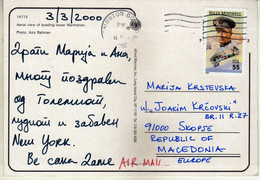 1A71X
Aerial view of bustling lower Manhattan.
Photo: Aziz Rahman
3/3/2000
BILLY MITCHELL
55
Драги Марија и Ана,
многу поздрави
од Големиот,
лудиот и забавен
New York.
Ве сака Zame
AIR MAIL
MARIJA KRSTEVSKA
ul. "JOAKIM KRČOVSKI"
BR. 11 R.27
91000 SKOPJE
REPUBLIC OF
MACEDONIA
EUROPE